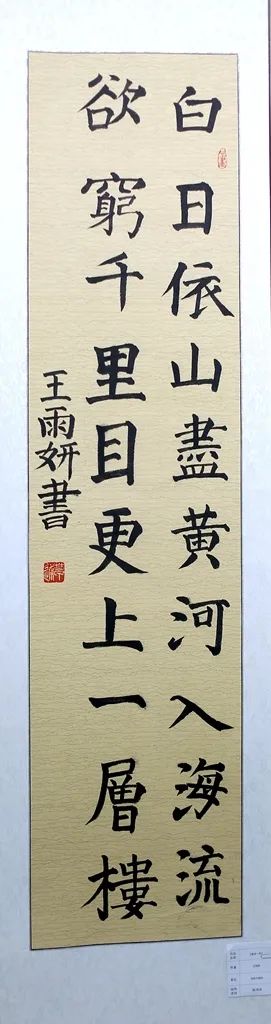 白日依山盡黃河入海流
欲窮千里目更上一層樓
王雨妍書